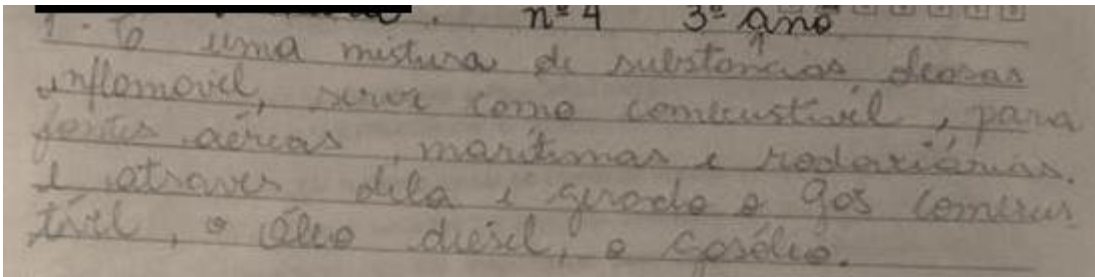 nº 4 3º ano
1 - É uma mistura de substâncias oleosas
inflamavel, serve como combustível, para
fontes aéreas, maritimas e rodoviárias.
e atraves dela é gerado o gás combus
tível, o óleo diesel, o gasóleo.